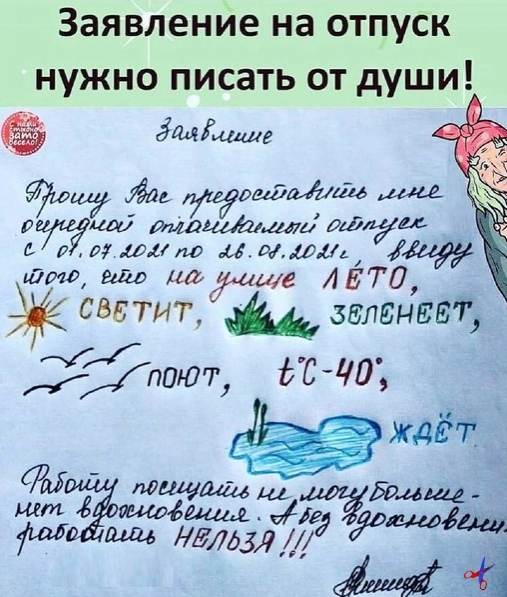 Заявление на отпуск
нужно писать от души!
С нами
только
зато
весело!
Заявление
Прошу Вас предоставить мне
очередной оплачиваемый отпуск
с 01.07.2021 по 26.08.2021г, ввиду
того, что на улице ЛЕТО,
СВЕТИТ, ЗЕЛЕНЕЕТ,
ПОЮТ, t°C-40°,
ЖДЁТ
Работу посещать не могу больше-
нет вдохновения. А без вдохновени
работать НЕЛЬЗЯ!!!